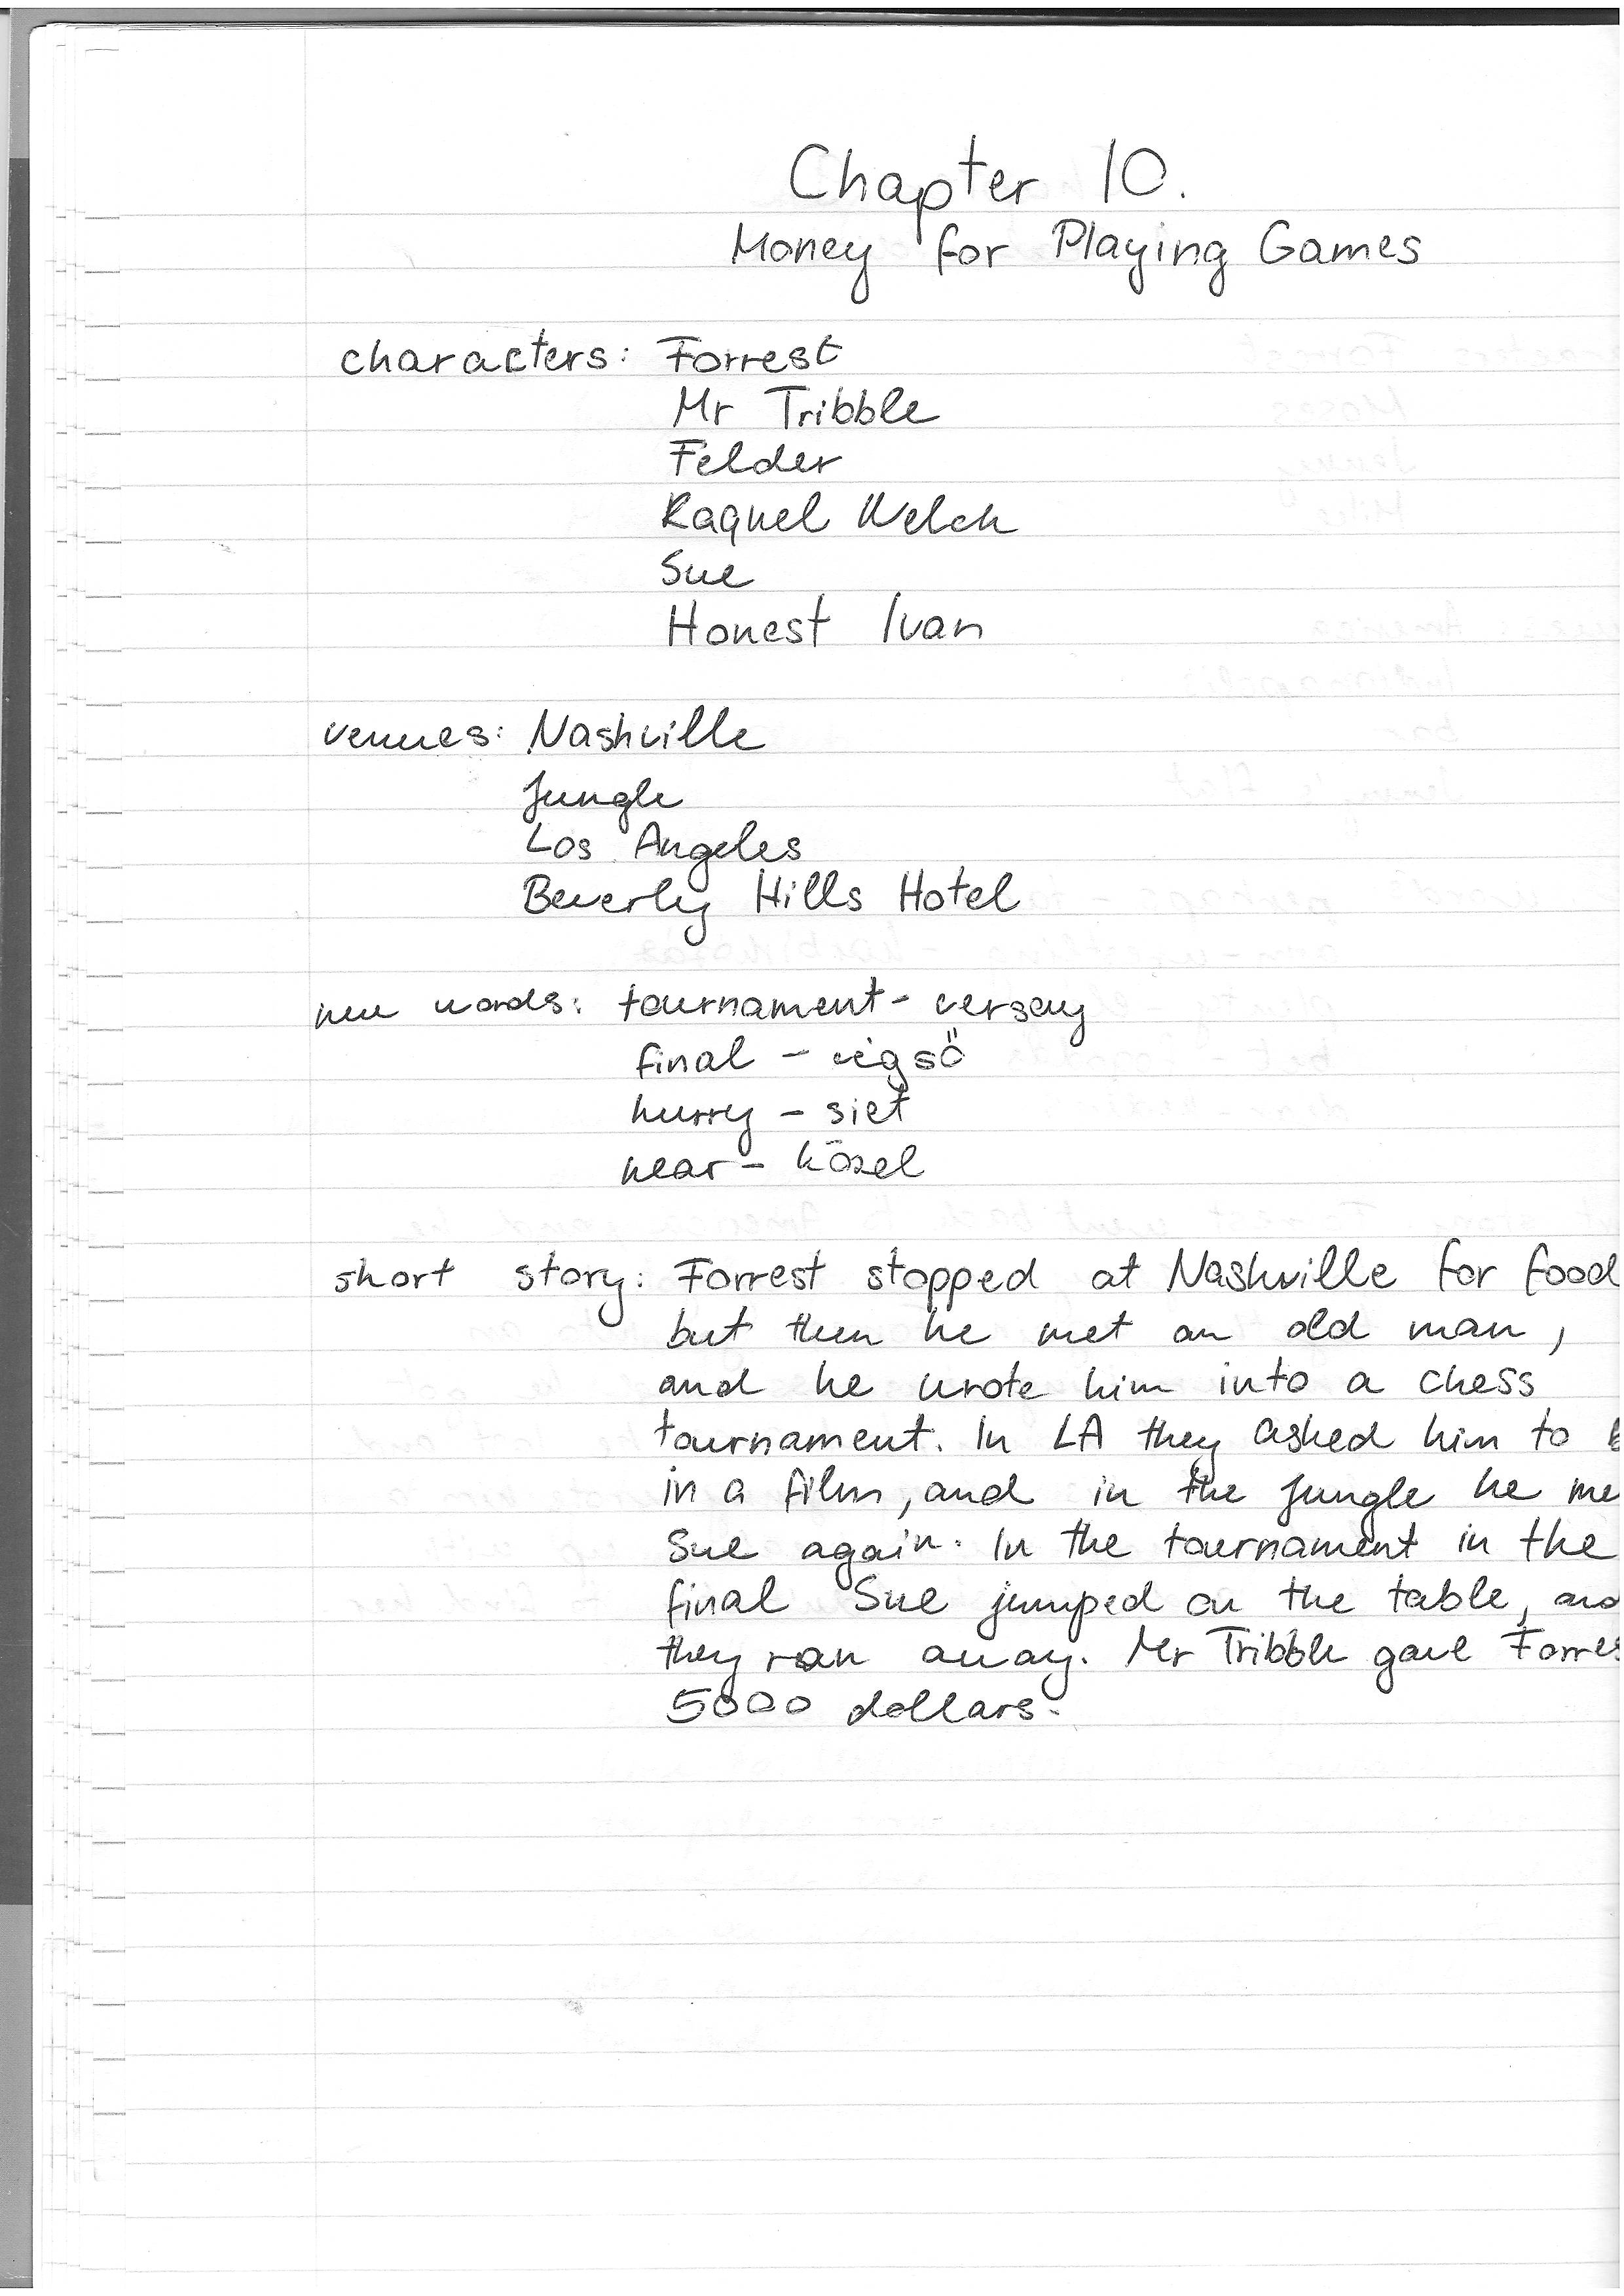 Chapter 10.
Money for Playing Games
characters: Forrest
Mr Tribble
Felder
Raquel Welch
Sue
Honest Ivan
venues: Nashville
Jungle
Los Angeles
Beverly Hills Hotel
new words: tournament - verseny
final - végső
hurry - siet
near - közel
short story: Forrest stopped at Nashville for food
but then he met an old man,
and he wrote him into a chess
tournament. In LA they asked him to b
in a film, and in the Jungle he me
Sue again. In the tournament in the
final Sue jumped on the table, and
they ran away. Mr Tribble gave Forres
5000 dollars.